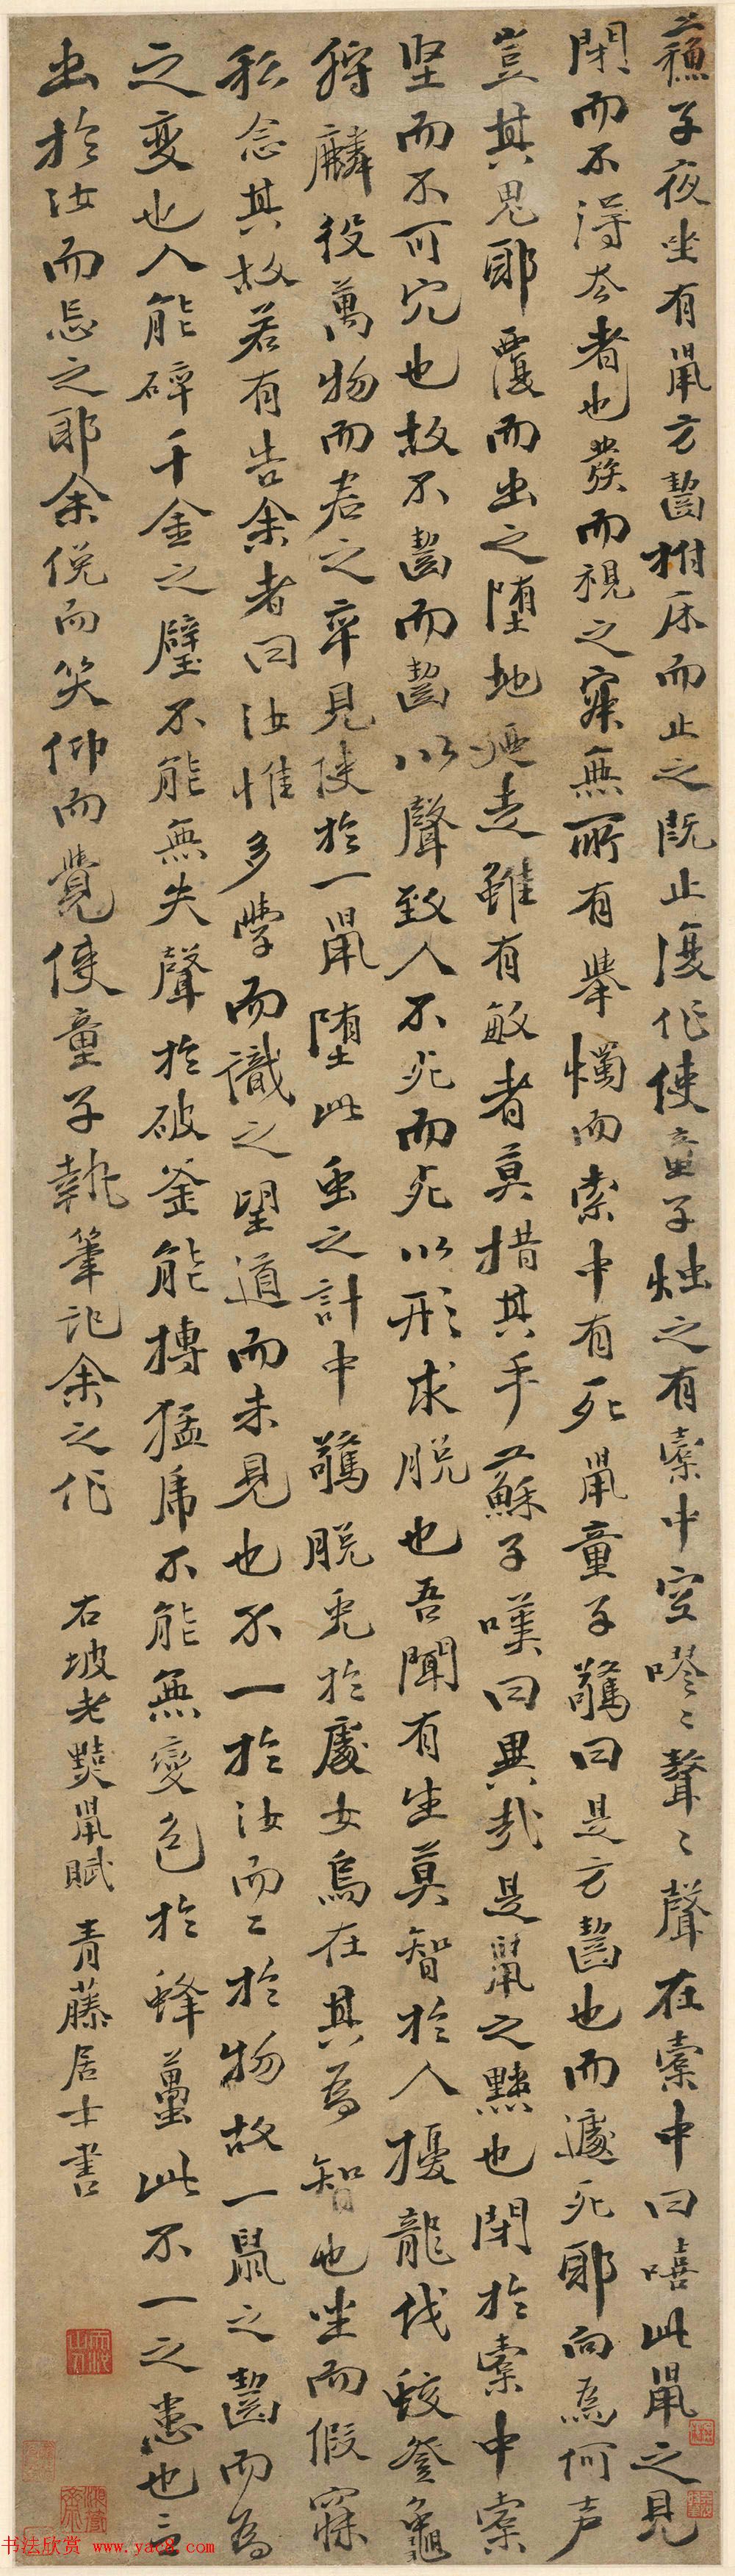 蘇子夜坐有鼠方齧拊床而止之既止復作使童子烛之有橐中空嘐〻聱〻聲在橐中曰嘻此鼠之見
閉而不得去者也發而視之寂無所有舉燭而索中有死鼠童子驚曰是方齧也而遽死耶向為何声
豈其鬼耶覆而出之墮地廼走雖有敏者莫措其手蘇子嘆曰異哉是鼠之黠也閉於橐中橐
坚而不可穴也故不齧而齧以聲致人不死而死以形求脱也吾聞有生莫智於人擾龍伐蛟登龜
狩麟役萬物而君之卒見使於一鼠墮此虫之計中驚脱兎於處女烏在其為智也坐而假寐
私念其故若有告余者曰汝惟多學而識之望道而未見也不一於汝而二於物故一鼠之齧而為
之变也人能碎千金之璧不能無失聲於破釜能搏猛虎不能無變色於蜂蠆此不一之患也言
出於汝而忘之耶余俛而笑仰而覺使童子執筆記余之作
右坡老黠鼠賦 青藤居士書
书法欣赏 www.yac8.com